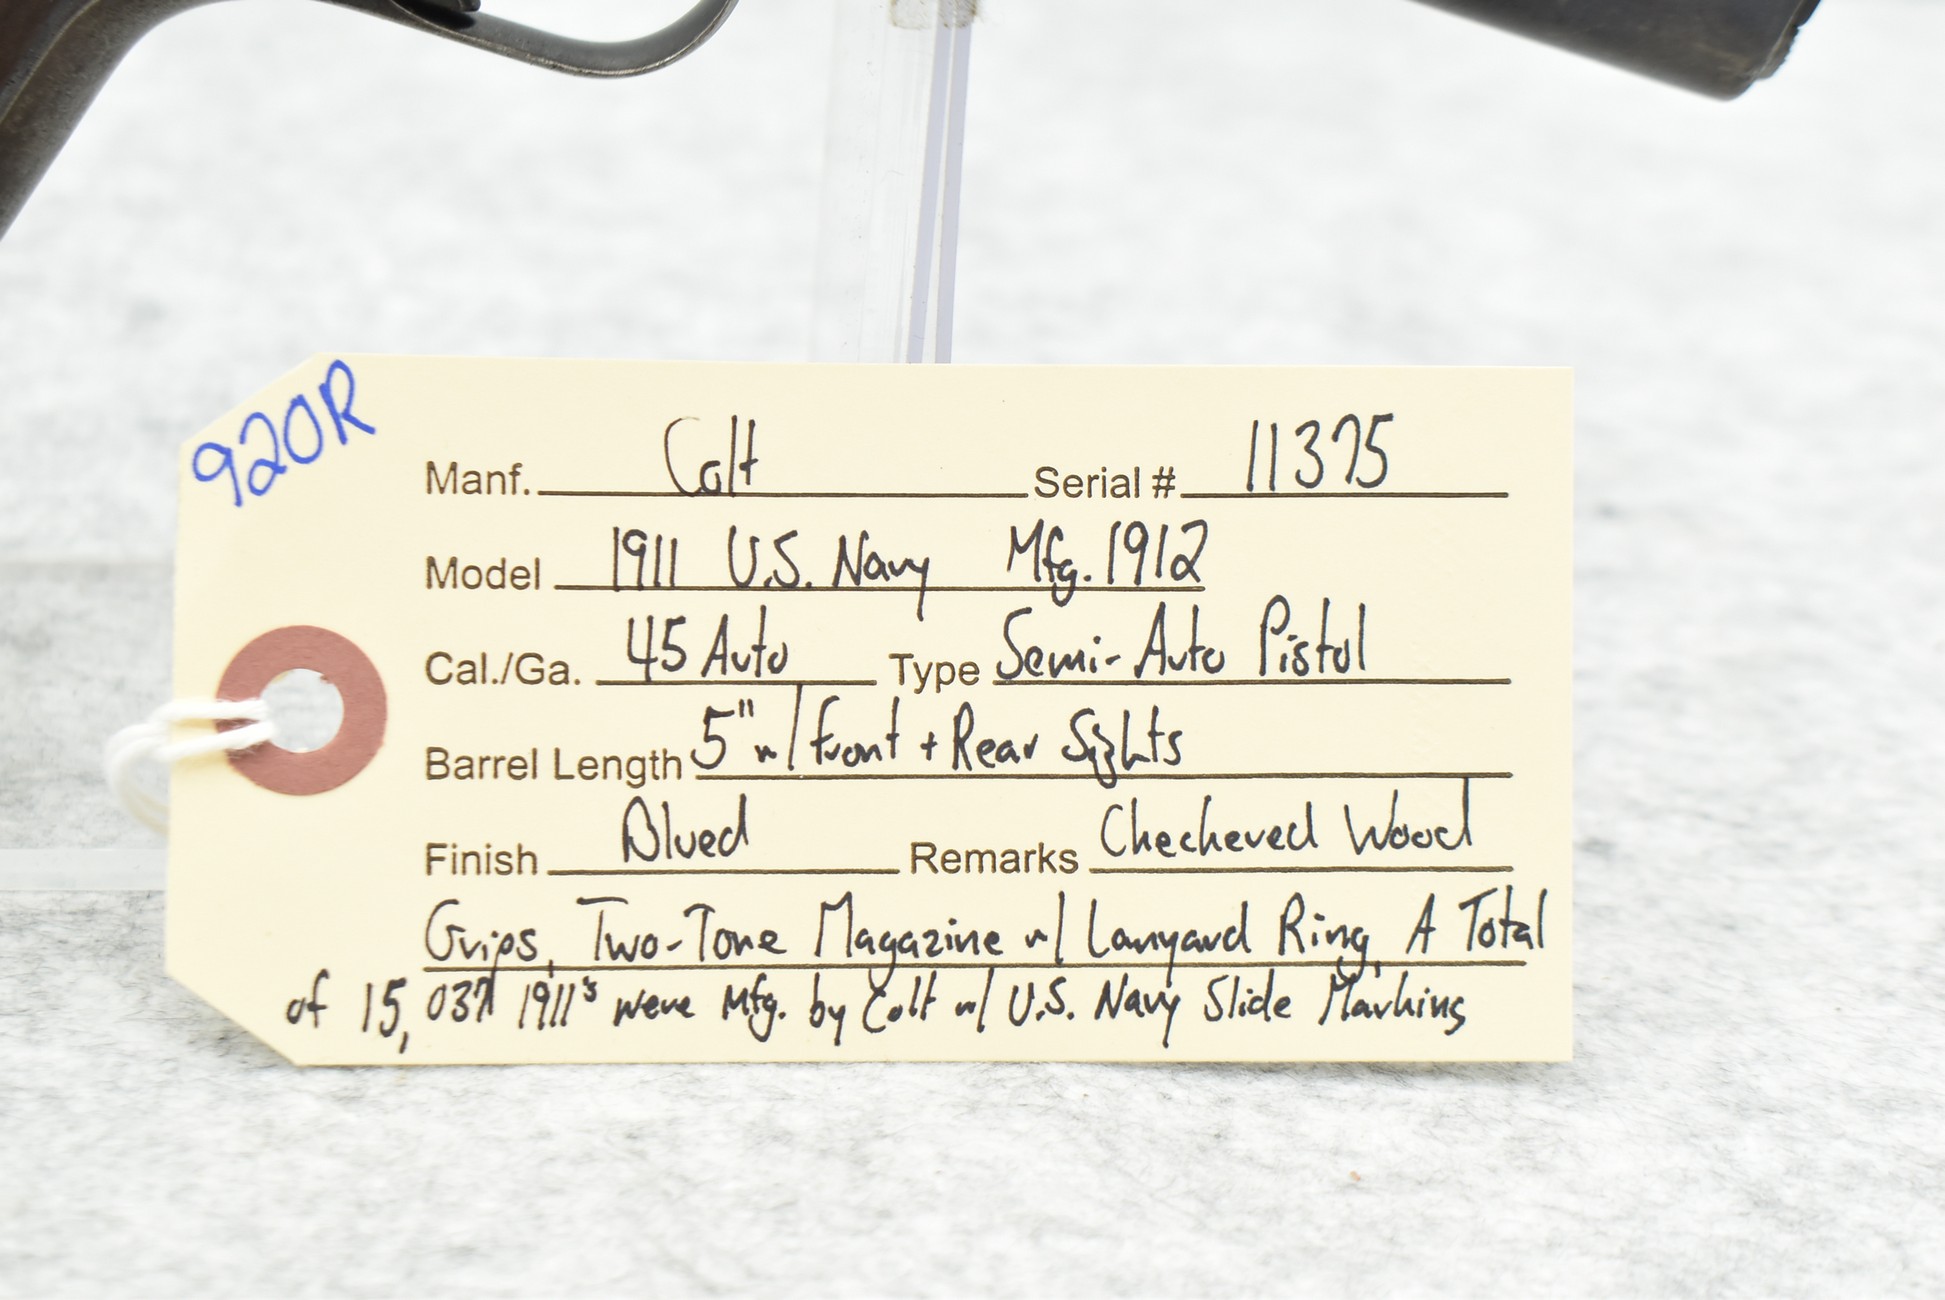 920R
Manf. Colt Serial # 11375
Model 1911 U.S. Navy Mfg. 1912
Cal./Ga. 45 Auto Type Semi-Auto Pistol
Barrel Length 5" w/ Front + Rear Sights
Finish Blued Remarks Checkered Wood
Grips, Two-Tone Magazine w/ Lanyard Ring, A Total
of 15,037 1911's were Mfg. by Colt w/ U.S. Navy Slide Marking